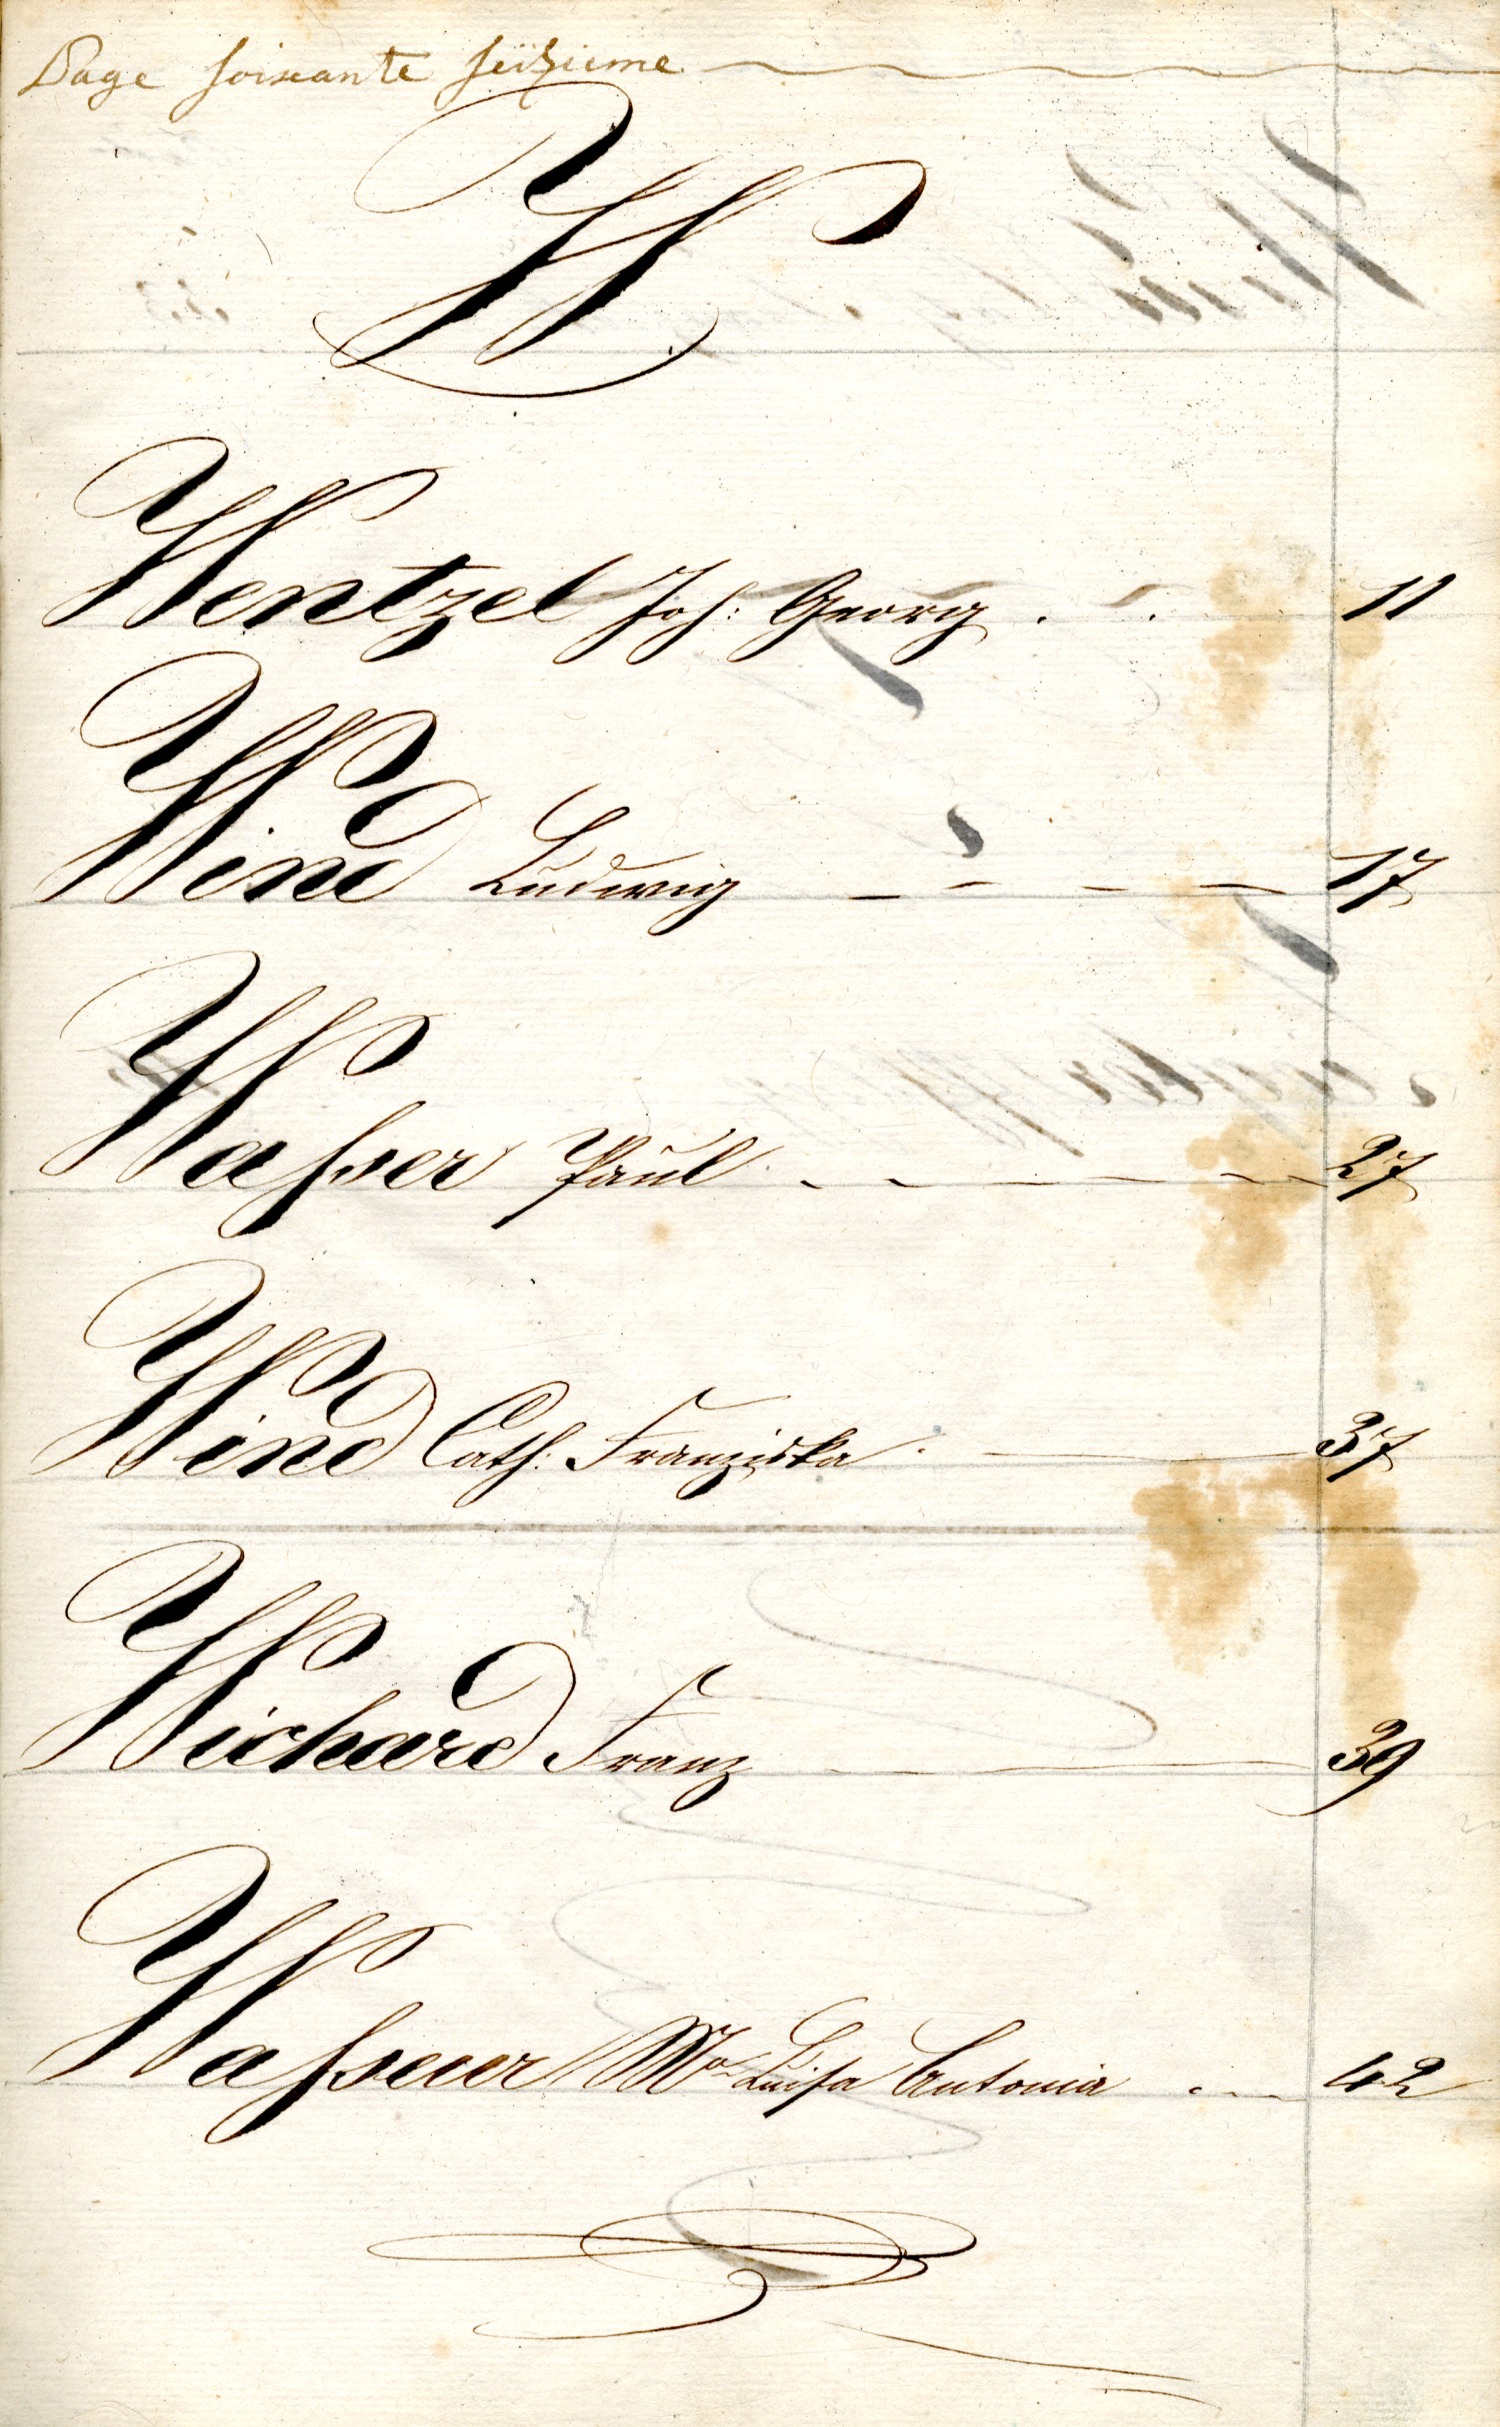 Page soixante seizieme
W
Wentzel Joh: Georg . . 11
Wind Ludwig - - - - 17
Wasser Paul - - - - - 27
Wind Cath: Franziska . - 37
Wichard Franz - - 39
Wasseur Ma Luisa Antonia - - - 42